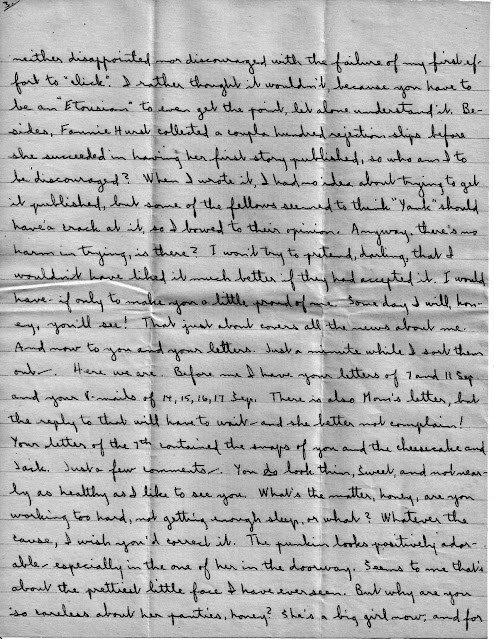 3.
neither disappointed nor discouraged with the failure of my first ef-
fort to "click". I rather thought it wouldn't, because you have to
be an "Etousian" to even get the point, let alone understand it. Be-
sides, Fannie Hurst collected a couple hundred rejection slips before
she succeeded in having her first story published, so who am I to
be discouraged? When I wrote it, I had no idea about trying to get
it published, but some of the fellows seemed to think "Yank" should
have a crack at it, so I bowed to their opinion. Anyway, there's no
harm in trying, is there? I won't try to pretend, darling, that I
wouldn't have liked it much better if they had accepted it. I would
have - if only to make you a little proud of me. Some day I will, hon-
ey, you'll see! That just about covers all the news about me.
And now to you and your letters. Just a minute while I sort them
out - Here we are. Before me I have your letters of 7 and 11 Sep
and your V-mails of 14, 15, 16, 17 Sep. There is also Mom's letter, but
the reply to that will have to wait - and she better not complain!
Your letter of the 7th contained the snaps of you and the cheesecake and
Jack. Just a few comments -. You do look thin, Sweet, and not near-
ly as healthy as I like to see you. What's the matter, honey, are you
working too hard, not getting enough sleep, or what? Whatever the
cause, I wish you'd correct it. The punkin looks positively ador-
able - especially in the one of her in the doorway. Seems to me that's
about the prettiest little face I have ever seen. But why are you
so careless about her panties, honey? She's a big girl now, and for